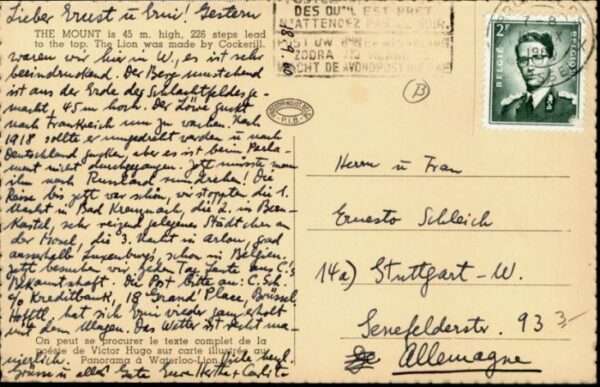 Lieber Ernst u Erni! Gestern
THE MOUNT is 45 m. high, 226 steps lead
to the top. The Lion was made by Cockerill.
waren wir hier in W., es ist sehr
beeindruckend. Der Berg umstehend
ist aus der Erde des Schlachtfeldes ge-
macht, 45 m hoch. Der Löwe guckt
nach Frankreich um zu wachen. Nach
1918 sollte er umgedreht werden u nach
Deutschland gucken, aber es ist beim Parla-
ment nicht durchgegangen. Jetzt müsste man
ihn nach Russland umdrehen! Die
Reise bis jetzt war schön, wir stoppten die 1.
Nacht in Bad Kreuznach, die 2. in Bern-
Kastel, sehr reizend gelegenes Städtchen an
der Mosel, die 3. Nacht in Arlon, grad
ausserhalb Luxemburgs, schon in Belgien.
Jetzt besuchen wir jeden Tag Leute aus C.'s
Bekanntschaft. Die Post bitte an: C. Sch.
c/o Kreditbank, 18 Grand' Place, Brüssel,
Hofftl, hat sich Erni wieder erholt
mit dem Magen. Das Wetter ist nicht ma-
nierlich.
On peut se procurer le texte complet de la
poésie de Victor Hugo sur carte illustrée au
Panorama à Waterloo-Lion
Grüsse u alles Gute Eure Herthe + Carlito
DES QU'IL EST PRET
N'ATTENDEZ PAS
18.9.60
ZODRA
WACHT DE AVONDPOST NIET AF
2F
BELGIE
BELGIQUE
B
Herrn u Frau
Ernesto Schleich
14a) Stuttgart-W.
Senefelderstr. 93
Allemagne